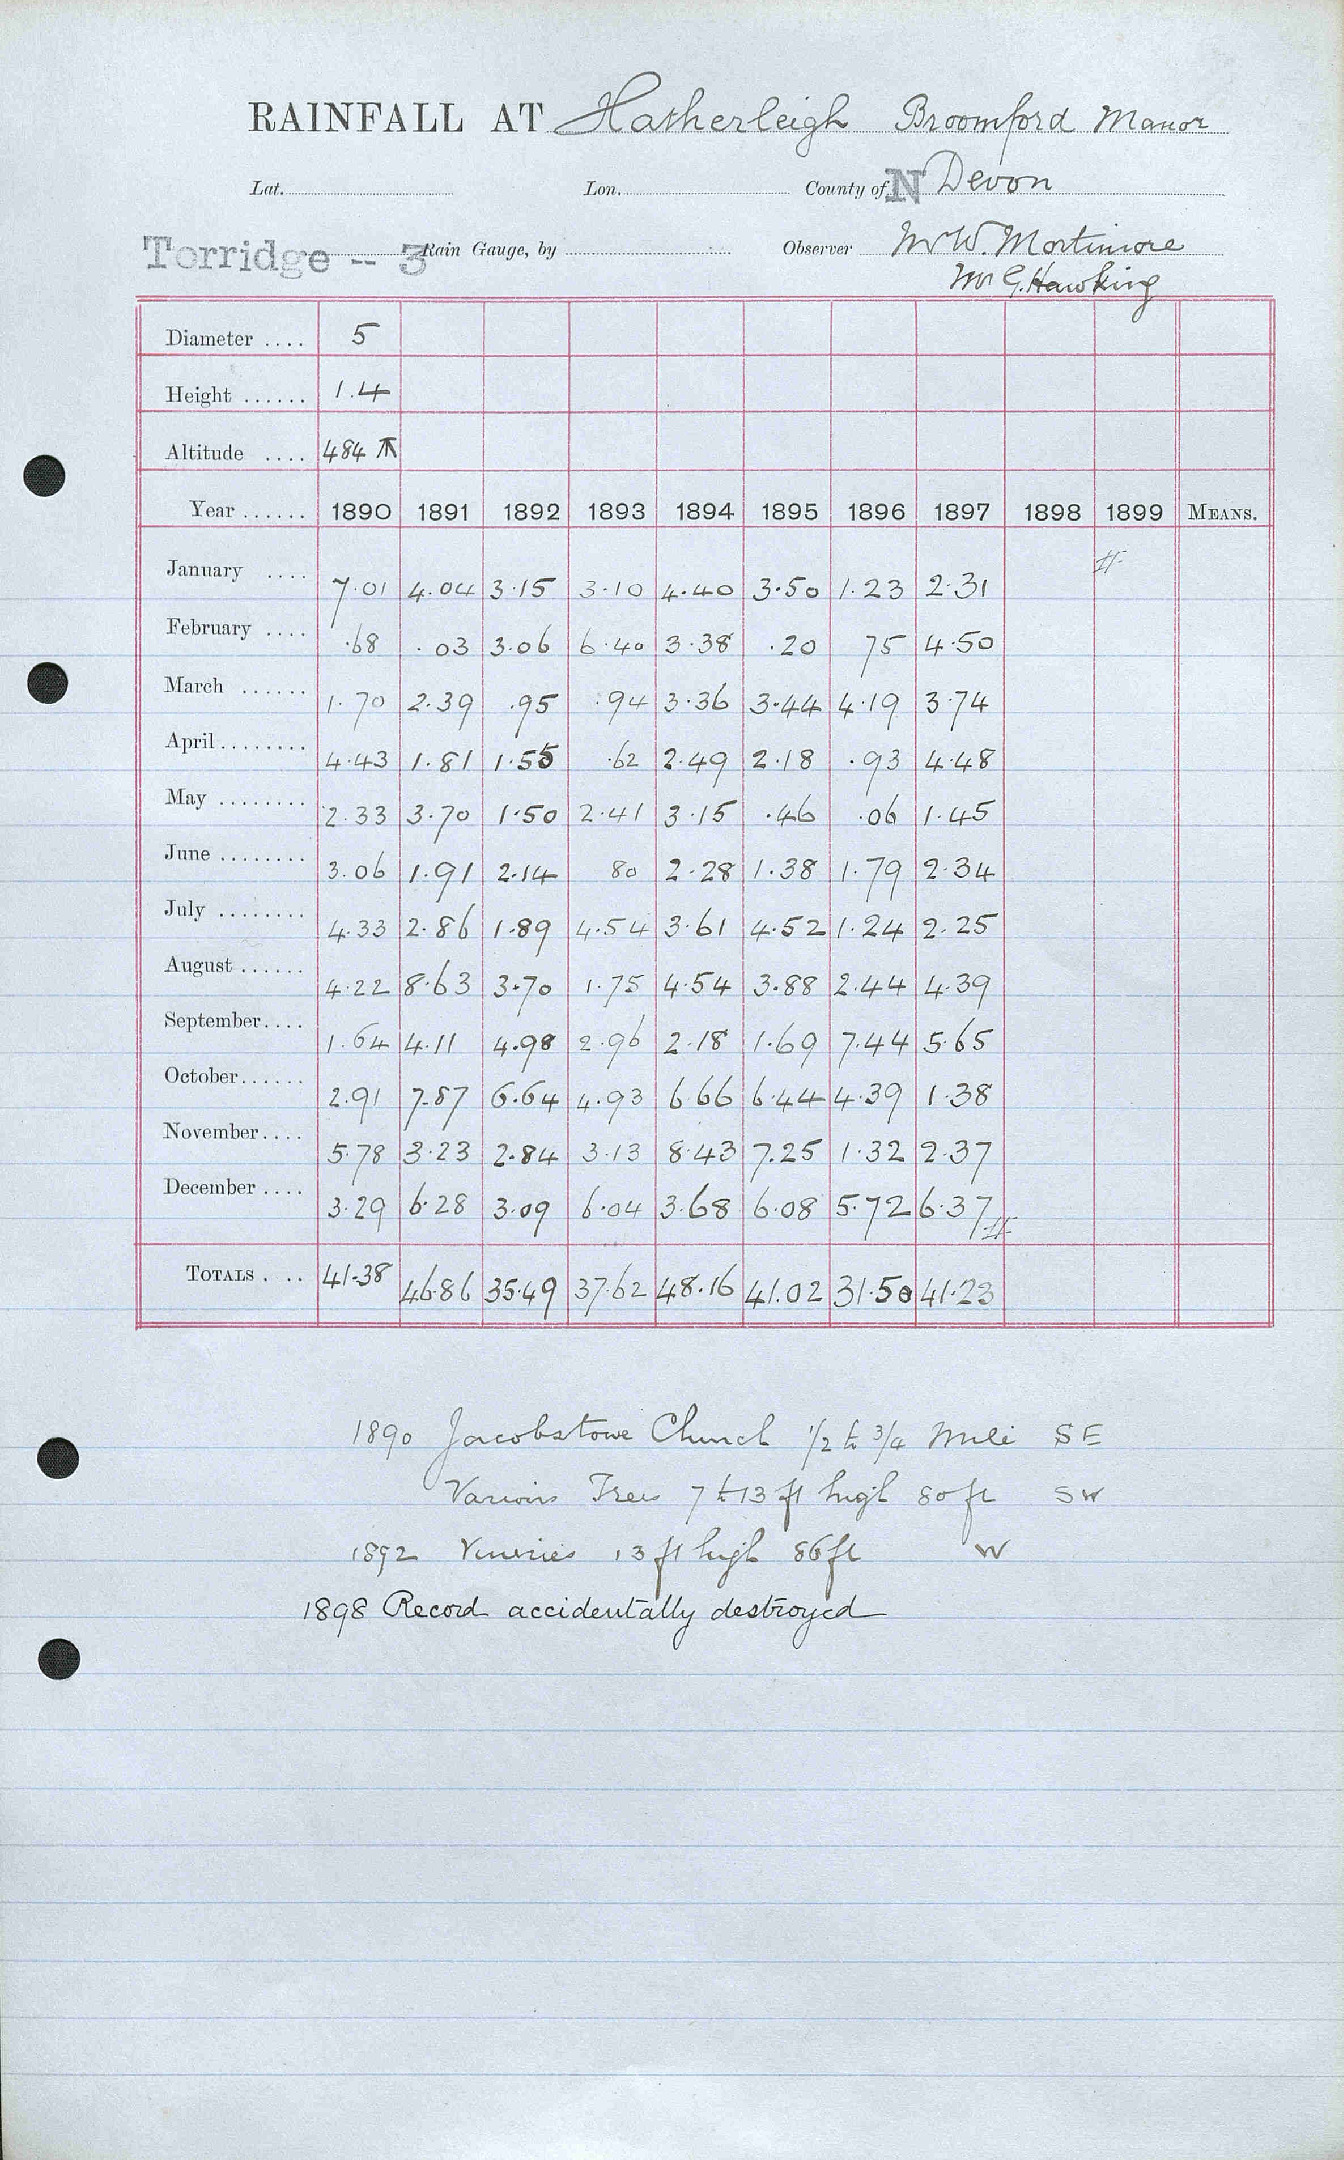 RAINFALL AT Hatherleigh Broomford Manor
Lat. Lon. County of N Devon
Torridge -- 3 Rain Gauge, by Observer Mr W. Mortimore
Mr G. Hawking
Diameter .... 5
Height ...... 1.4
Altitude .... 484
Year ...... 1890 1891 1892 1893 1894 1895 1896 1897 1898 1899 MEANS.
January .... 7.01 4.04 3.15 3.10 4.40 3.50 1.23 2.31
February .... .68 .03 3.06 6.40 3.38 .20 75 4.50
March ...... 1.70 2.39 .95 .94 3.36 3.44 4.19 3.74
April ........ 4.43 1.81 1.55 .62 2.49 2.18 .93 4.48
May ........ 2.33 3.70 1.50 2.41 3.15 .46 .06 1.45
June ........ 3.06 1.91 2.14 80 2.28 1.38 1.79 2.34
July ........ 4.33 2.86 1.89 4.54 3.61 4.52 1.24 2.25
August ...... 4.22 8.63 3.70 1.75 4.54 3.88 2.44 4.39
September .... 1.64 4.11 4.98 2.96 2.18 1.69 7.44 5.65
October ...... 2.91 7.87 6.64 4.93 6.66 6.44 4.39 1.38
November .... 5.78 3.23 2.84 3.13 8.43 7.25 1.32 2.37
December .... 3.29 6.28 3.09 6.04 3.68 6.08 5.72 6.37
TOTALS .... 41.38 46.86 35.49 37.62 48.16 41.02 31.50 41.23
1890 Jacobstowe Church 1/2 to 3/4 Mile SE
Various Trees 7 to 13 ft high 80 ft SW
1892 Vineries 13 ft high 86 ft W
1898 Record accidentally destroyed